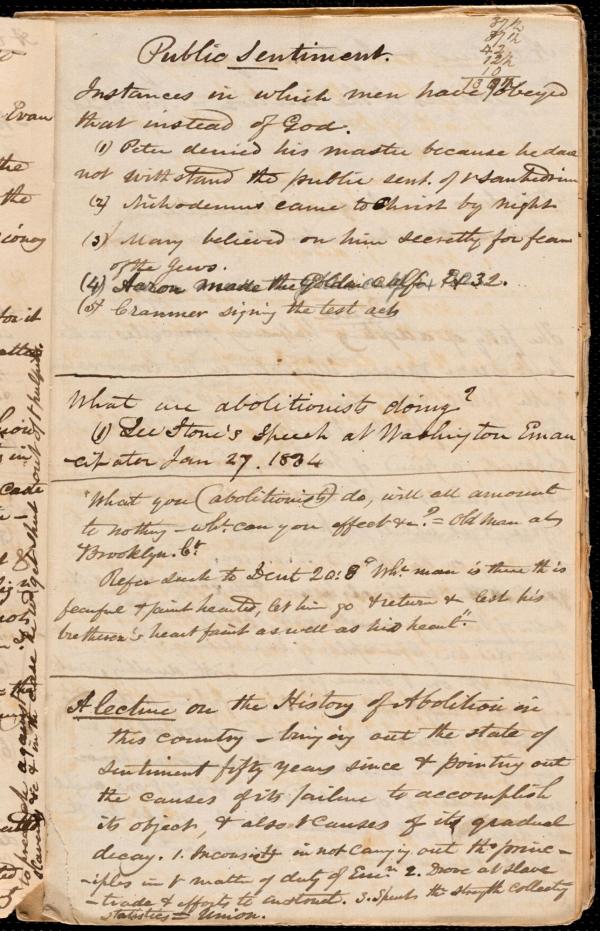 Public Sentiment.
37½
37½
42
12½
10
Instances in which men have obeyed
that instead of God.
(1) Peter denied his master because he dare
not withstand the public sent. of t Sanhedrim
(2) Nichodemus came to Christ by night
(3) Many believed on him secretly for fear
of the Jews.
(4) Aaron made the Golden calf. 32.
(5) Cranmer signing the test acts
What are abolitionists doing?
(1) See Stone's Speech at Washington Eman
-cipator Jan 27. 1834
"What you (abolitionists) do, will all amount
to nothing - wht can you effect &c"? = old man at
Brooklyn. Ct
Refer such to Deut 20:8 "Wht man is there th is
fearful & faint hearted, let him go & return & lest his
bretheren's heart faint as well as his heart".
A lecture on the History of Abolition in
this country - bringing out the state of
sentiment fifty years since & pointing out
the causes of its failure to accomplish
its object, & also t causes of its gradual
decay. 1. in not carrying out the princ-
-iples in t matter of duty of 2. Drove at slave
-trade & efforts to 3. Spent the strength collecting
statistics = Union.
Evan
the
the
for it
to preach against
slavery &c & in the case the wd get shut out of t pulpits.